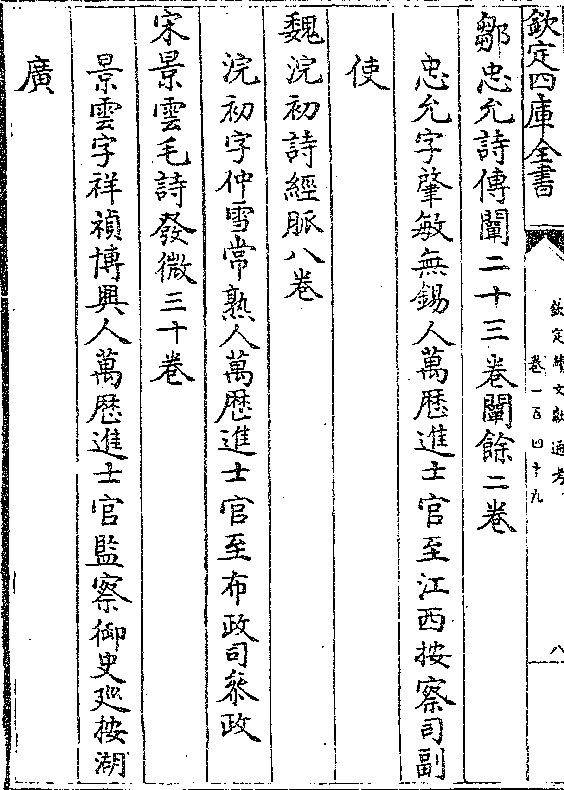 欽定四庫全書
欽定續文獻通考
卷一百四十九
八
鄒忠允詩傳闡二十三卷闡餘二卷
忠允字肇敏無錫人萬歴進士官至江西按察司副
使
魏浣初詩經脈八卷
浣初字仲雪常熟人萬歴進士官至布政司叅政
宋景雲毛詩發微三十卷
景雲字祥禎博興人萬歴進士官監察御史廵按湖
廣